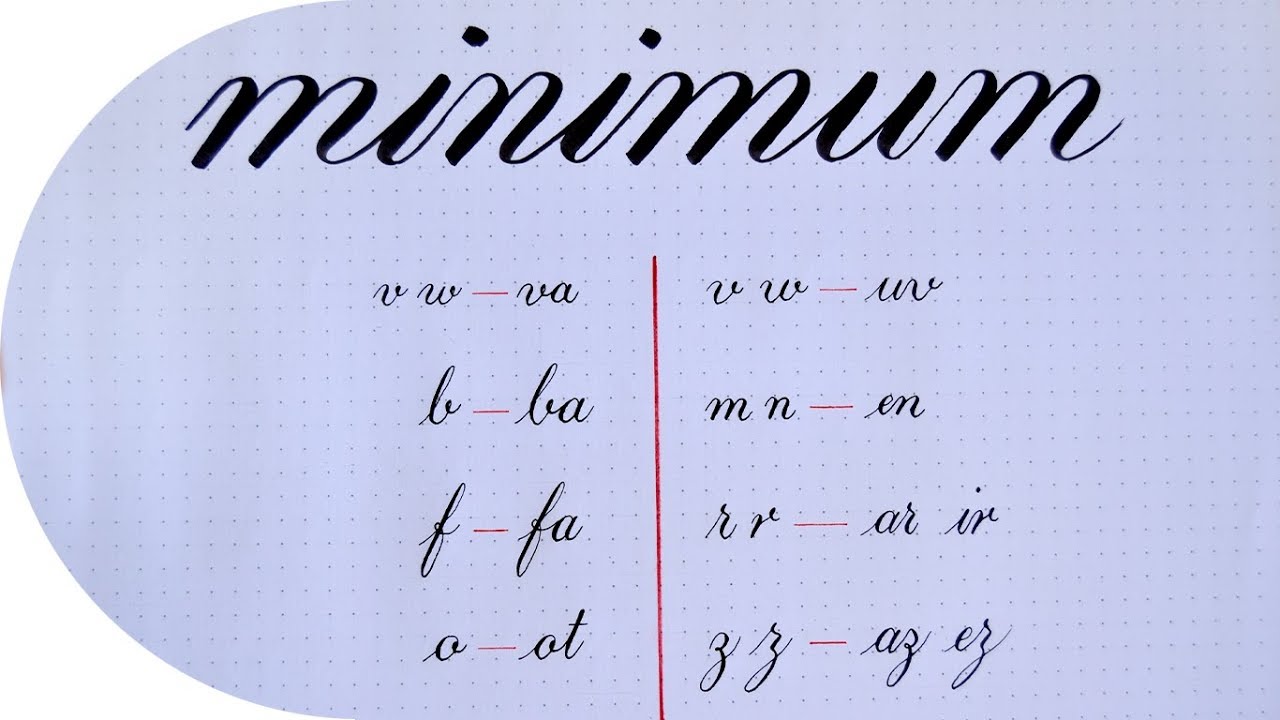 minimum
v w — va
b — ba
f — fa
o — ot
v w — uv
m n — en
r r — ar ir
z z — az ez